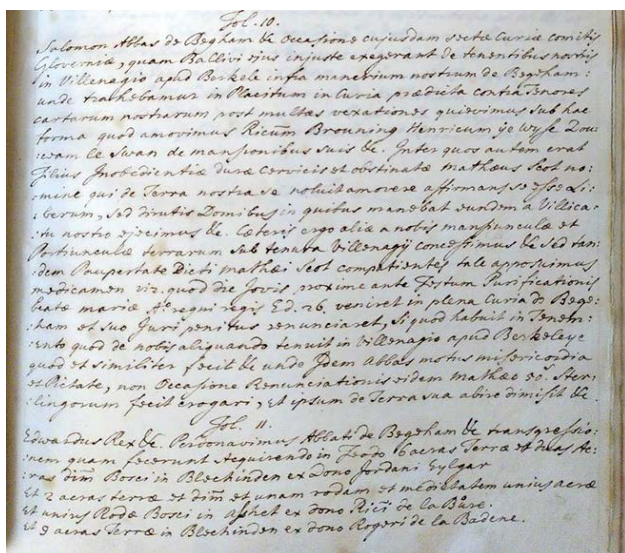 Fol. 10.
Salomon Abbas de Begham &c Occasione cujusdam sectæ Curiæ comitis
Gloverniæ, quam Ballivi ejus injuste exegerant de tenentibus nostris
in Villenagio apud Berkele infra manerium nostrum de Begeham:
unde trahebamur in Placitum in Curia prædicta contra Tenores
cartarum nostrarum post multas vexationes quievimus sub hac
forma quod amovimus Ricum Brouning Henricum ye Wyse Dou:
:ceam le Swan de mansionibus suis &c. Inter quos autem erat
Filius Inobedientiæ duræ Cervicis et obstinatæ Mathæus Scot no:
:mine qui de Terra nostra se noluit amovere affirmans se esse Li:
:berum, sed dirutis Domibus in quibus manebat eundem a Villica:
:tu nostro ejecimus &c. Cæteris ergo aliæ a nobis mansiunculæ et
Portiunculæ terrarum sub tenura Villenagij concessimus &c sed tan:
:dem Paupertate Dicti Mathæi Scot compatientes tale apposuimus
medicamen viz. quod die Jovis proxime ante Festum Purificationis
beatæ mariæ Ao. regni regis Ed. 26. veniret in plena Curia de Bege:
:ham et suo Juri penitus renunciaret, si quod habuit in Tenem:
:ento quod de nobis aliquando tenuit in Villenagio apud Berkeleye
quod et similiter fecit &c unde Idem Abbas motus misericordia
et Pietate, non Occasione Renunciationis eidem Mathæo 50s. Ster:
:lingorum fecit erogari, et ipsum de Terra sua abire dimisit &c.
Fol. 11.
Edwardus Rex &c. Perdonavimus Abbati de Begeham &c transgressio:
:nem quam fecerunt Acquirendo in Feodo 6 acras Terræ et duas Ac:
:ras dim Bosci in Blechinden ex Dono Jordani Eylgar
Et 2 acras terræ et dim et unam rodam et medietatem unius acræ
Et unius Rodæ Bosci in Ashet ex dono Rici de la Bure.
Et 9 acras Terræ in Blechinden ex dono Rogeri de la Badene.